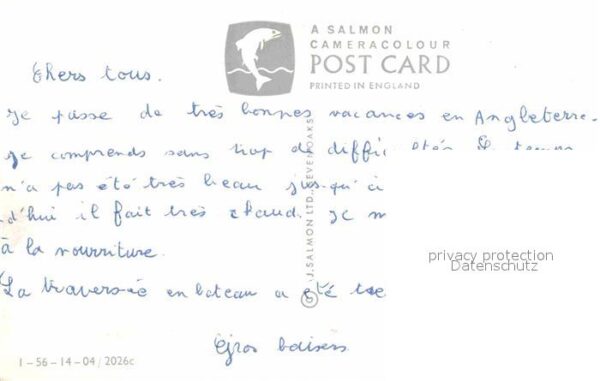 A SALMON
CAMERACOLOUR
POST CARD
PRINTED IN ENGLAND
Chers tous.
Je passe de très bonnes vacances en Angleterre.
Je comprends sans trop de difficultés. Le temps
n'a pas été très beau jusqu'ici
d'hui il fait très chaud. Je m
à la nourriture.
La traversée en bateau a été
Gros baisers
© J. SALMON LTD., SEVENOAKS
privacy protection
Datenschutz
1-56-14-04/2026c